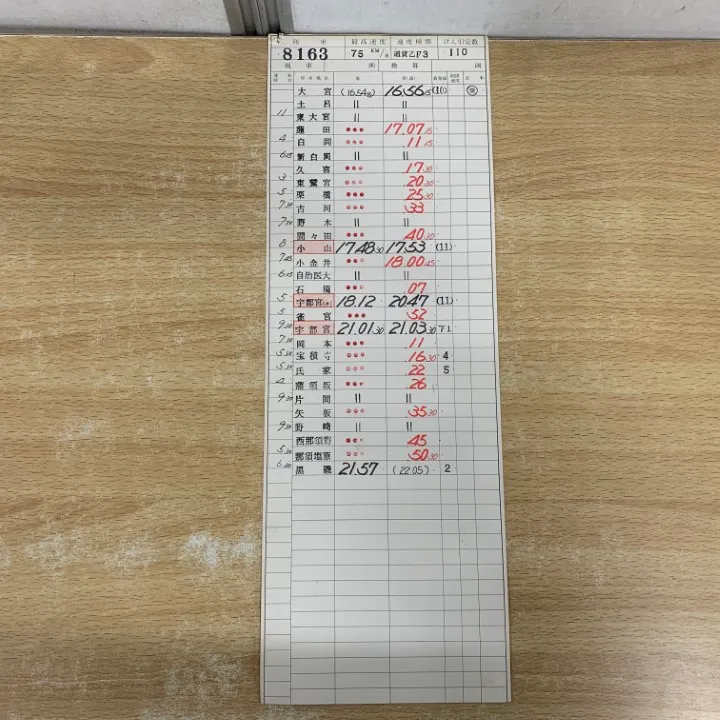 列車 最高速度 速度種別 けん引定数
8163 75 KM/ 通貨乙F3 110
換算
大宮 (16.54) 16.56
土呂 || ||
11 東大宮 || ||
蓮田 ••• 17.07 15
4 白岡 ••• .11 15
6.15 新白岡 || ||
久喜 ••• 17 30
3 東鷲宮 ••• 20 30
5 栗橋 ••• 25 30
7.30 古河 ••• 33
7.30 野木 || ||
間々田 ••• 40 30
8 小山 17.48 30 17.53 (11)
7.45 小金井 ••• 18.00 45
6.15 自治医大 || ||
石橋 ••• .07
5 宇都宮 18.12 2047 (11)
5 雀宮 ••• 52
9.30 宇都宮 21.01 30 21.03 30 下1
7.30 岡本 ••• 11
5.30 宝積寺 ••• 16 30 4
5.30 氏家 ••• 22 5
4 蒲須坂 ••• 26
9.30 片岡 || ||
矢板 ••• 35 30
9.30 野崎 || ||
西那須野 ••• 45
5.30 那須塩原 ••• 50 30
6.30 黒磯 21.57 (22.05) 2